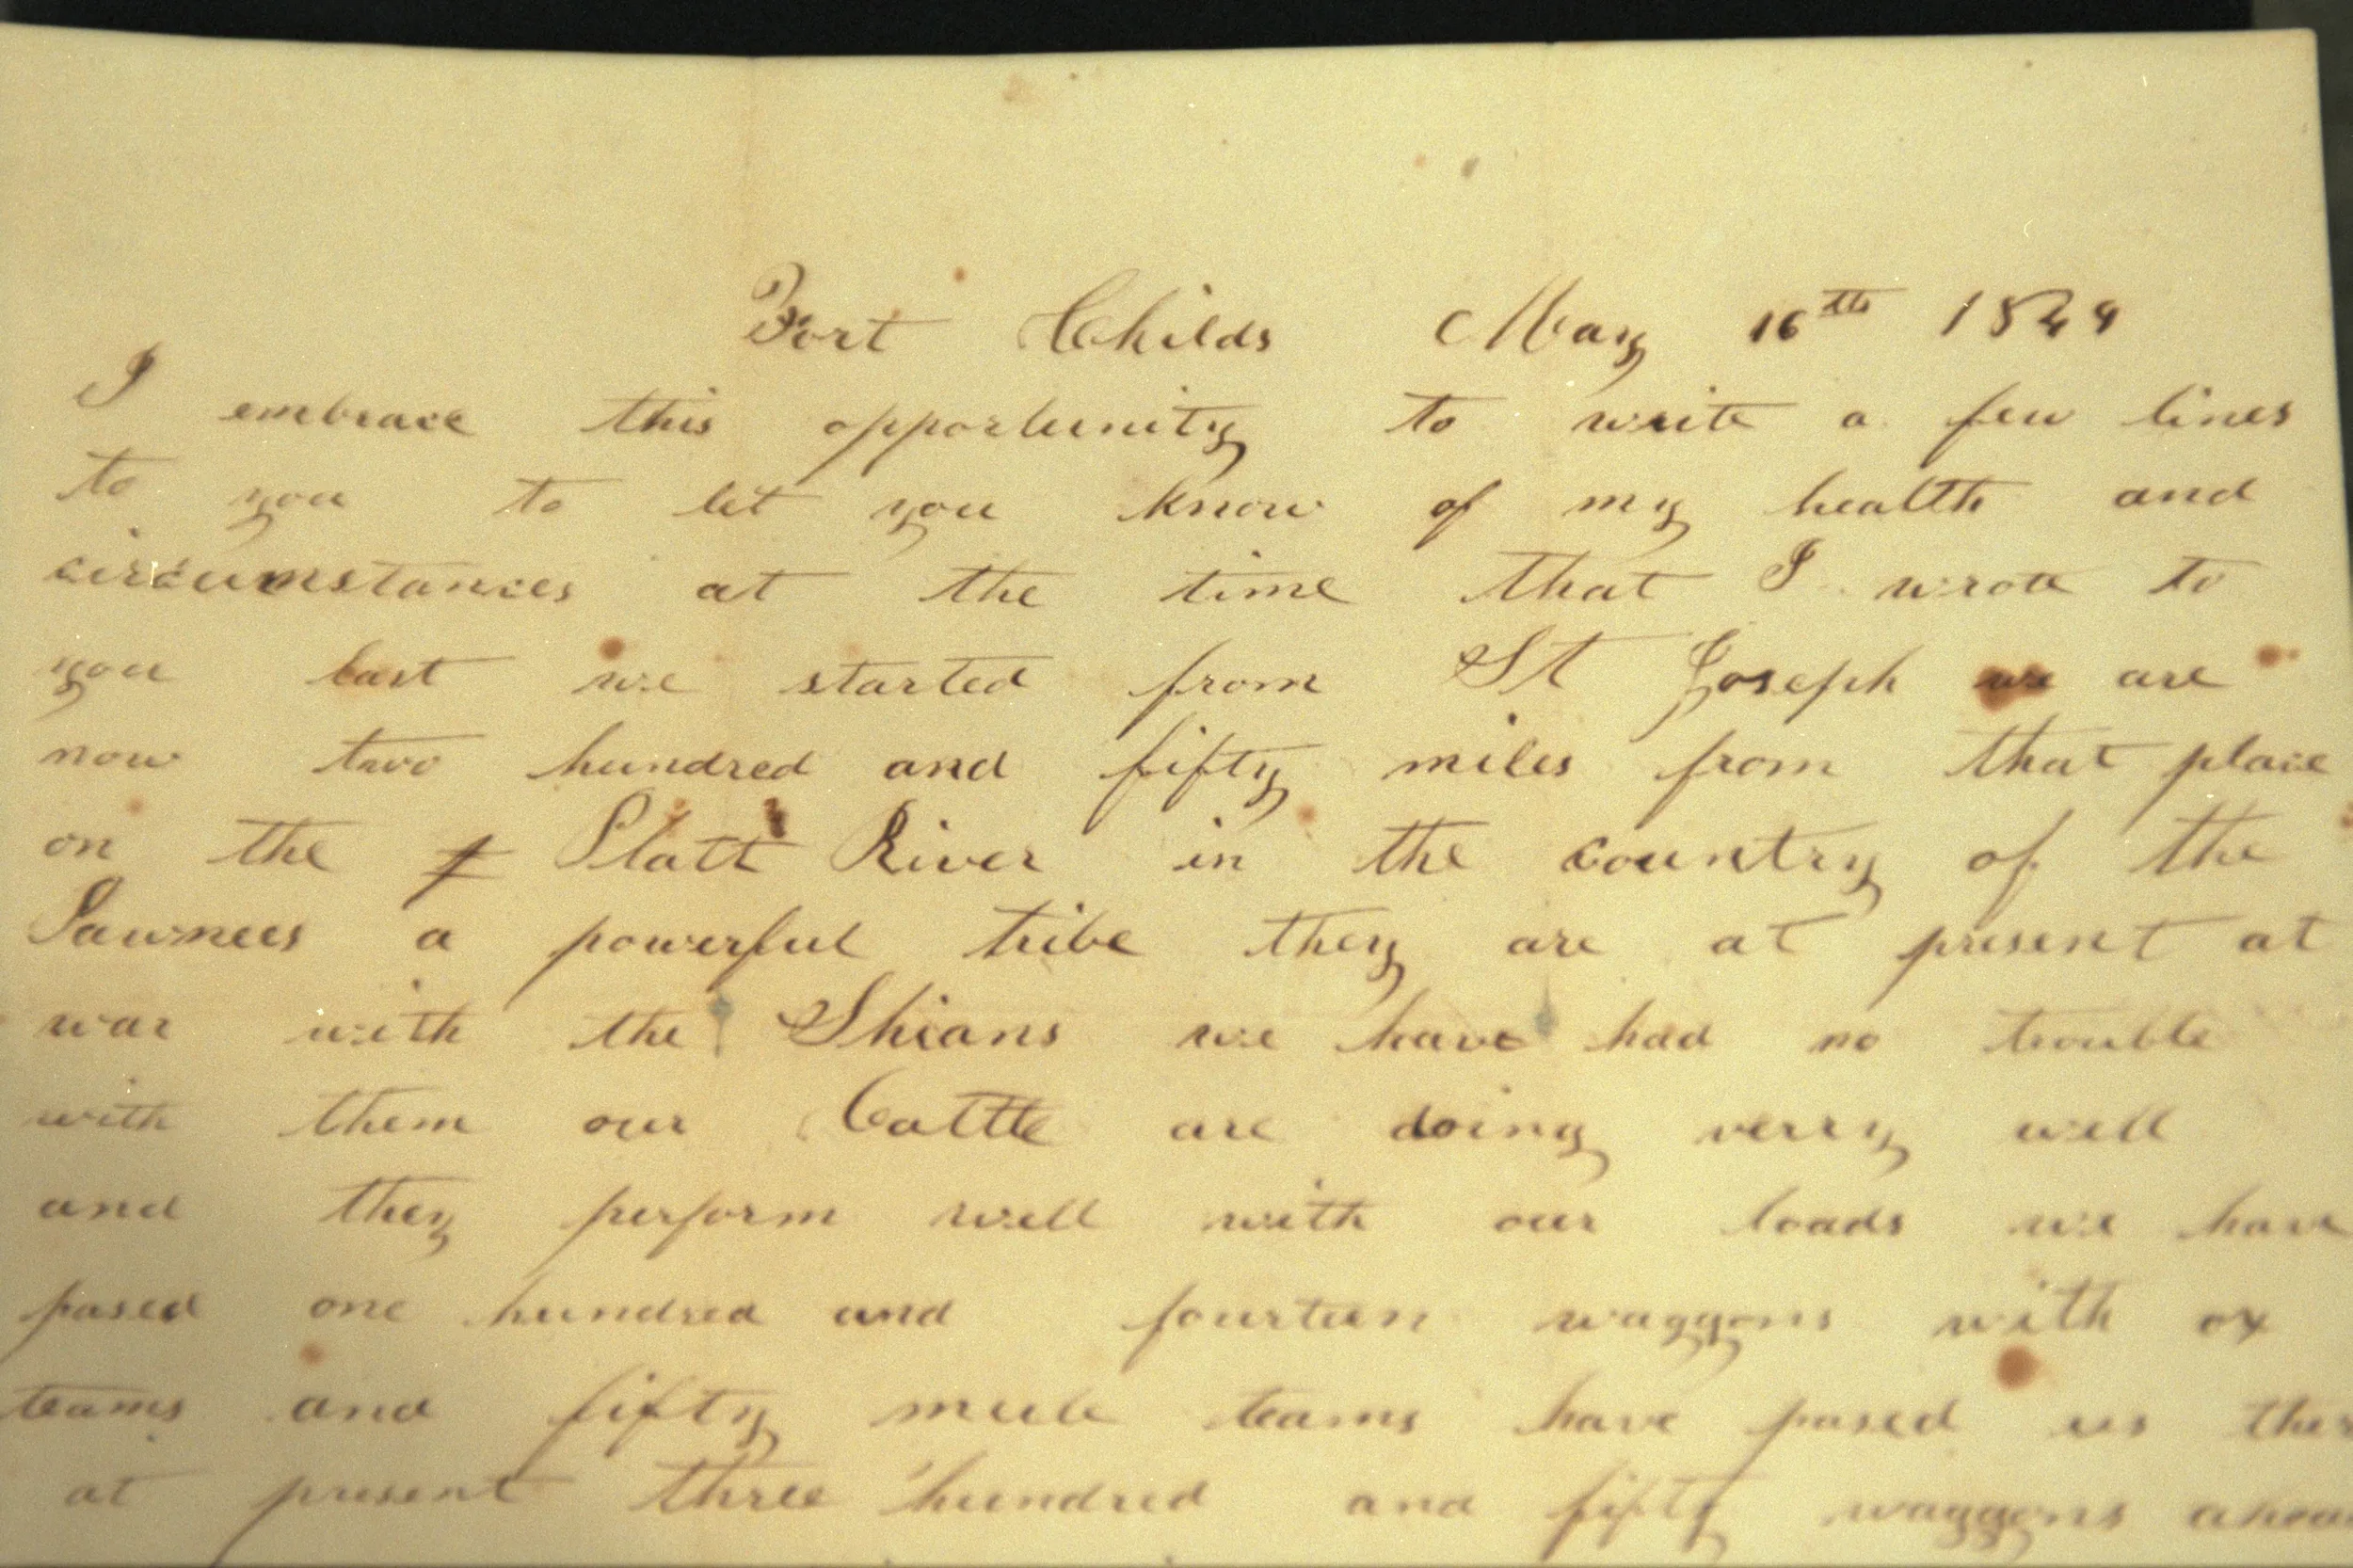 Fort Childs May 16th 1849
I embrace this opportunity to write a few lines
to you to let you know of my health and
circumstances at the time that I wrote to
you last we started from St Joseph we are
now two hundred and fifty miles from that place
on the Platt River in the country of the
Pawnees a powerful tribe they are at present at
war with the Shians we have had no trouble
with them our Cattle are doing verry well
and they perform well with our loads we have
pased one hundred and fourteen waggons with ox
teams and fifty mule teams have pased us
at present three hundred and fifty waggons